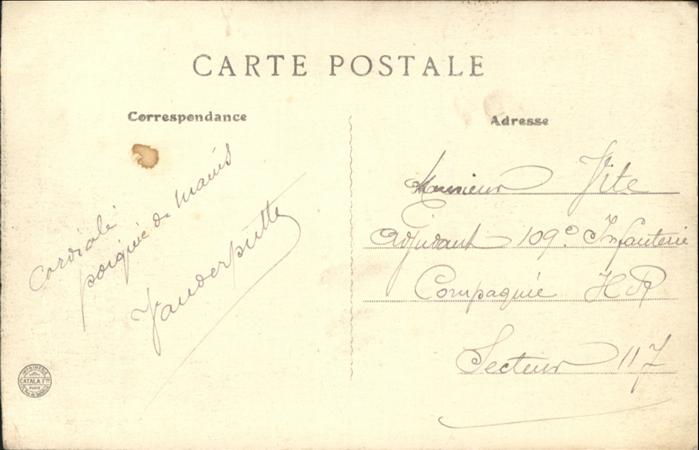 CARTE POSTALE
Correspondance
Cordiale
poignée de mains
Vanderputte
Adresse
Monsieur Vite
Adjudant 109e Infanterie
Compagnie H R
Secteur 117
CATALA Fres
PARIS